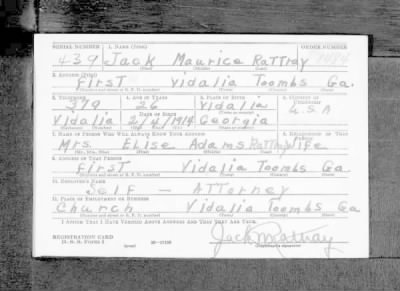 SERIAL NUMBER 1. NAME (Print) ORDER NUMBER
439 Jack Maurice Rattray
(First) (Middle) (Last)
2. ADDRESS (Print)
First Vidalia Toombs Ga.
3. TELEPHONE 4. AGE IN YEARS 5. PLACE OF BIRTH 6. COUNTRY OF CITIZENSHIP
379 26 Vidalia U.S.A
DATE OF BIRTH
Vidalia 2/4/1914 Georgia
7. NAME OF PERSON WHO WILL ALWAYS KNOW YOUR ADDRESS 8. RELATIONSHIP OF THAT PERSON
Mrs. Elise Adams Rattray Wife
9. ADDRESS OF THAT PERSON
First Vidalia Toombs Ga
10. EMPLOYER'S NAME
Self - Attorney
11. PLACE OF EMPLOYMENT OR BUSINESS
Church Vidalia Toombs Ga
I AFFIRM THAT I HAVE VERIFIED ABOVE ANSWERS AND THAT THEY ARE TRUE.
REGISTRATION CARD
D. S. S. FORM 1
(over)
Jack M Rattray
(Registrant's signature)